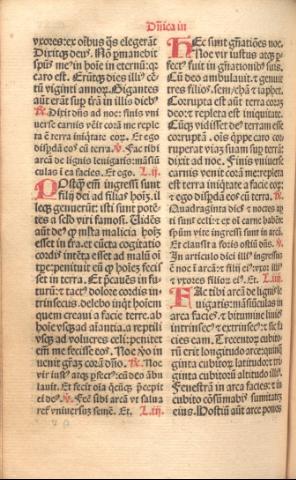 Dñica in
vxores: ex oĩbus q̃s elegerãt
Dixitq; deus. Nõ ꝑmanebit
spũs meus in hoĩe in eternũ: qꝛ
caro est. Erũtq; dies illiꝰ cẽ
tũ viginti annoꝝ. Gigantes
aũt erãt suꝑ trã in illis dieb9
℟. Dixit dñs ad noe: finis vni
uerse carnis vẽit corã me reple
ta ẽ terra iniq̃tate eoꝝ. Et ego
disp̃dã eos cũ terra. ℣. Fac tibi
arcã de lignis leuigatis: mãsiũ
culas ĩ ea facies. Et ego. L.ij.
POstq̃ em̃ ingressi sunt
filij dei ad filias hoĩs, il
leq; genuerũt: isti sunt potẽ
tes a sclo viri famosi. Uidẽs
aũt de9 ꝙ mĩta malicia hoĩs
esset in tra. et cũcta cogitatio
cordis intẽta esset ad malũ oĩ
tꝑe: penituit eũ ꝙ hoĩez fecis
set in terra. Et p̃cauẽs in fu
turũ: ⁊ tact9 dolore cordis in
trinsecus. delebo inq̃t hoiem
quem creaui a facie terre. ab
hoĩe vsq; ad aĩantia. a reptili
vsq; ad volucres celi: penitet
em̃ me fecisse eos. Noe v̊o in
uenit grãz corã dño. ℟. Noe
vir iust9 atq; ꝑfect9 cũ deo ãbu
lauit. Et fecit oĩa q̃cũq; p̃cepit
ei de9. ℣. Fec̃ sibi arcã vt salua
ret̃ vniuersuz semẽ. Et. L.iij.
HEc sunt gñatiões noe.
Noe vir iustus atq; ꝑ
fect9 fuit in gñationib9 suis.
Cũ deo ambulauit. ⁊ genuit
tres filios. sem / chã ⁊ iaphet.
Corrupta est aũt terra coraz
deo: ⁊ repleta est iniquitate.
Cũq; vidisset de9 terram esse
corruptã. oĩs q̃ppe caro cor
ruperat viaz suam suꝑ terrã:
dixit ad noe. Finis vniuerse
carnis venit corã me: repleta
est terra iniq̃tate a facie eoꝝ:
⁊ ego disꝑdã eos cũ terra. ℟.
Quadraginta dies ⁊ noctes aꝑ
ti sunt celi: ⁊ ex oĩ carne habẽte
spũm vite ingressi sunt in arcã.
Et clausit a foris ostiũ dñs. ℣.
In articulo diei illi9 ingressus
ẽ noe ĩ arcã: ⁊ filij ei9. vxor illi9
⁊ vxores filioꝝ ei9. Et. L.iij.
FAc tibi arcã de lignis le
uigatis: mãsiũculas in
arca facies. ⁊ bitumine linies
intrinsec9 ⁊ extrinsec9: ⁊ sic fa
cies eam. Trecentoꝝ cubito
rũ erit longitudo arce: quin
ginta cubitoꝝ latitudo: tri
ginta cubitoꝝ altitudo illi9.
Fenestrã in arca facies: ⁊ in
cubito cõsumabis sumitatẽ
eius. Hostiũ aũt arce pones